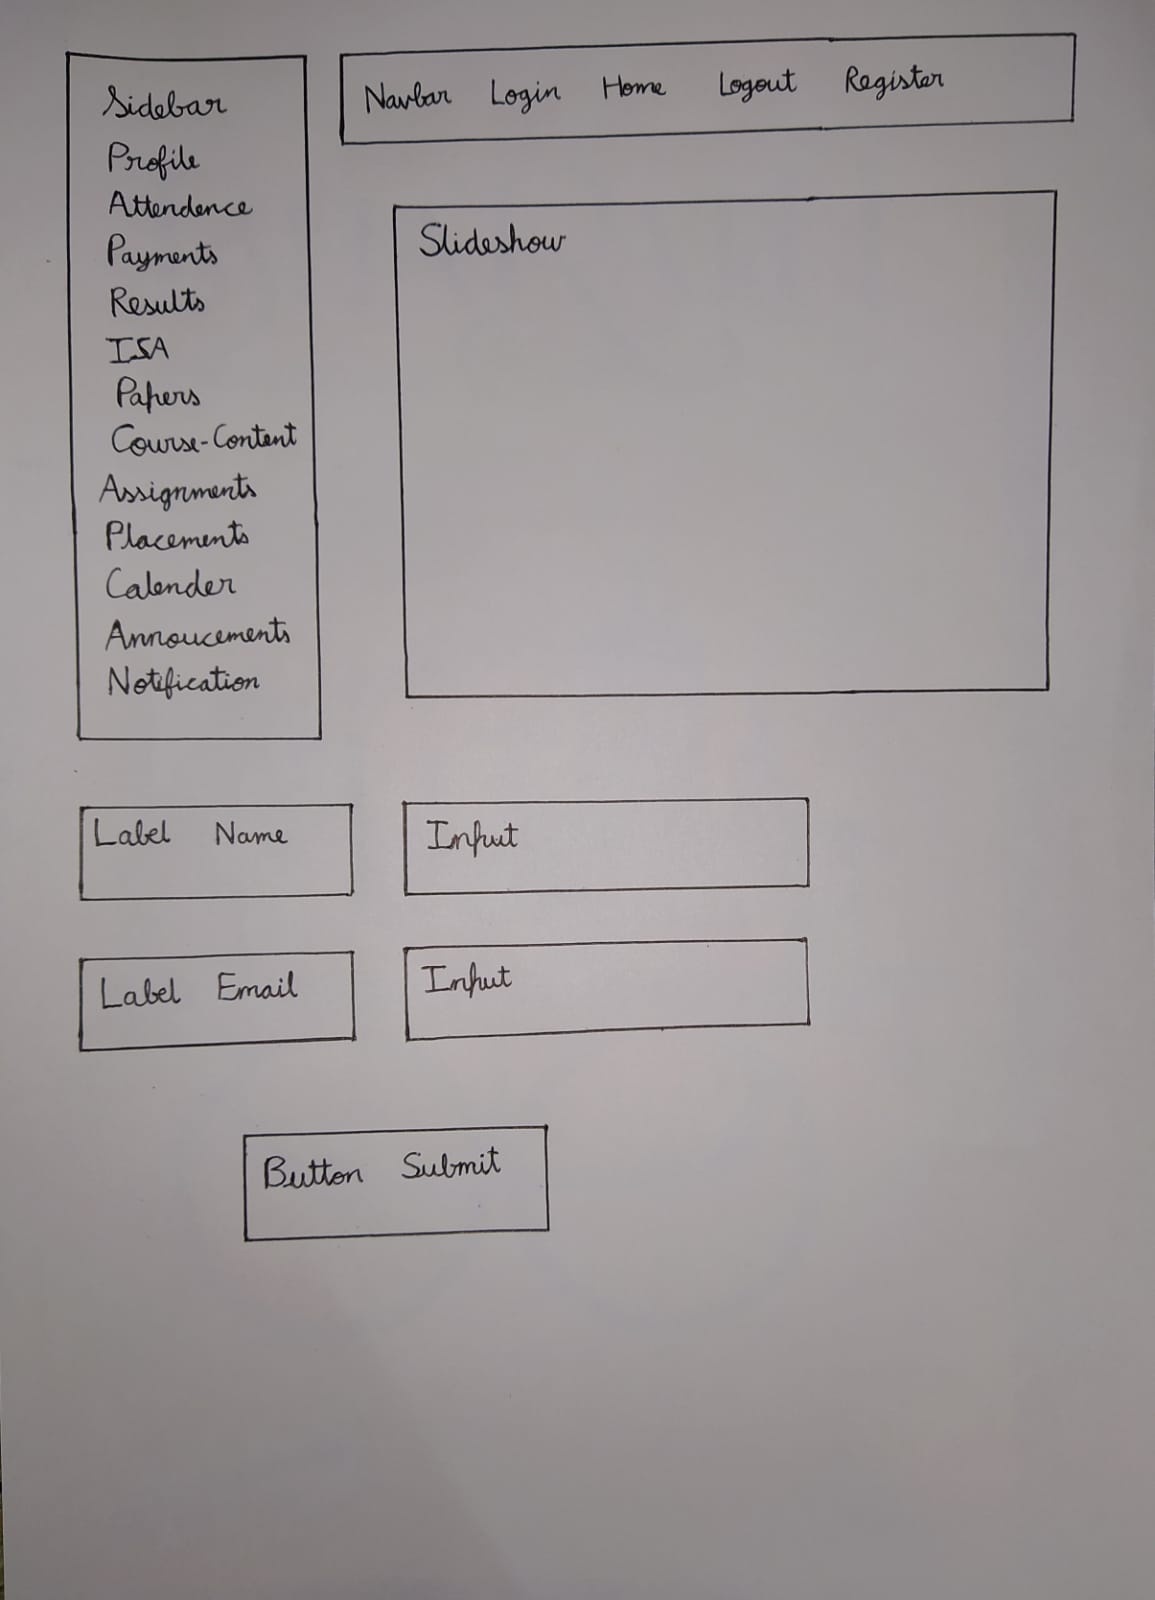 Sidebar
Profile
Attendence
Payments
Results
ISA
Papers
Course-Content
Assignments
Placements
Calender
Annoucements
Notification
Navbar Login Home Logout Register
Slideshow
Label Name
Input
Label Email
Input
Button Submit